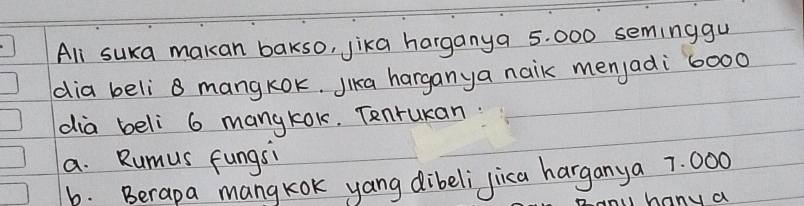 Ali suka makan bakso, jika harganya 5.000 seminggu
dia beli 8 mangkok. Jika harganya naik menjadi 6000
dia beli 6 mangkok. Tentukan :
a. Rumus fungsi
b. Berapa mangkok yang dibeli jika harganya 7.000
hanya